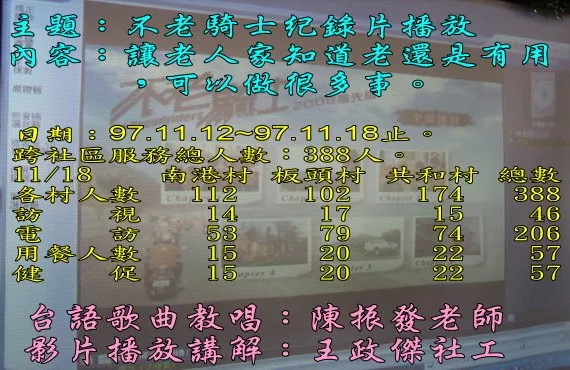 主題：不老騎士紀錄片播放
內容：讓老人家知道老還是有用
，可以做很多事。
日期：97.11.12~97.11.18止。
跨社區服務總人數：388人。
11/18 南港村 板頭村 共和村 總數
各村人數 112 102 174 388
訪 視 14 17 15 46
電 訪 53 79 74 206
用餐人數 15 20 22 57
健 促 15 20 22 57
台語歌曲教唱：陳振發老師
影片播放講解：王政傑社工
不老騎士
Chapter
Chapter 4
Chapter 5